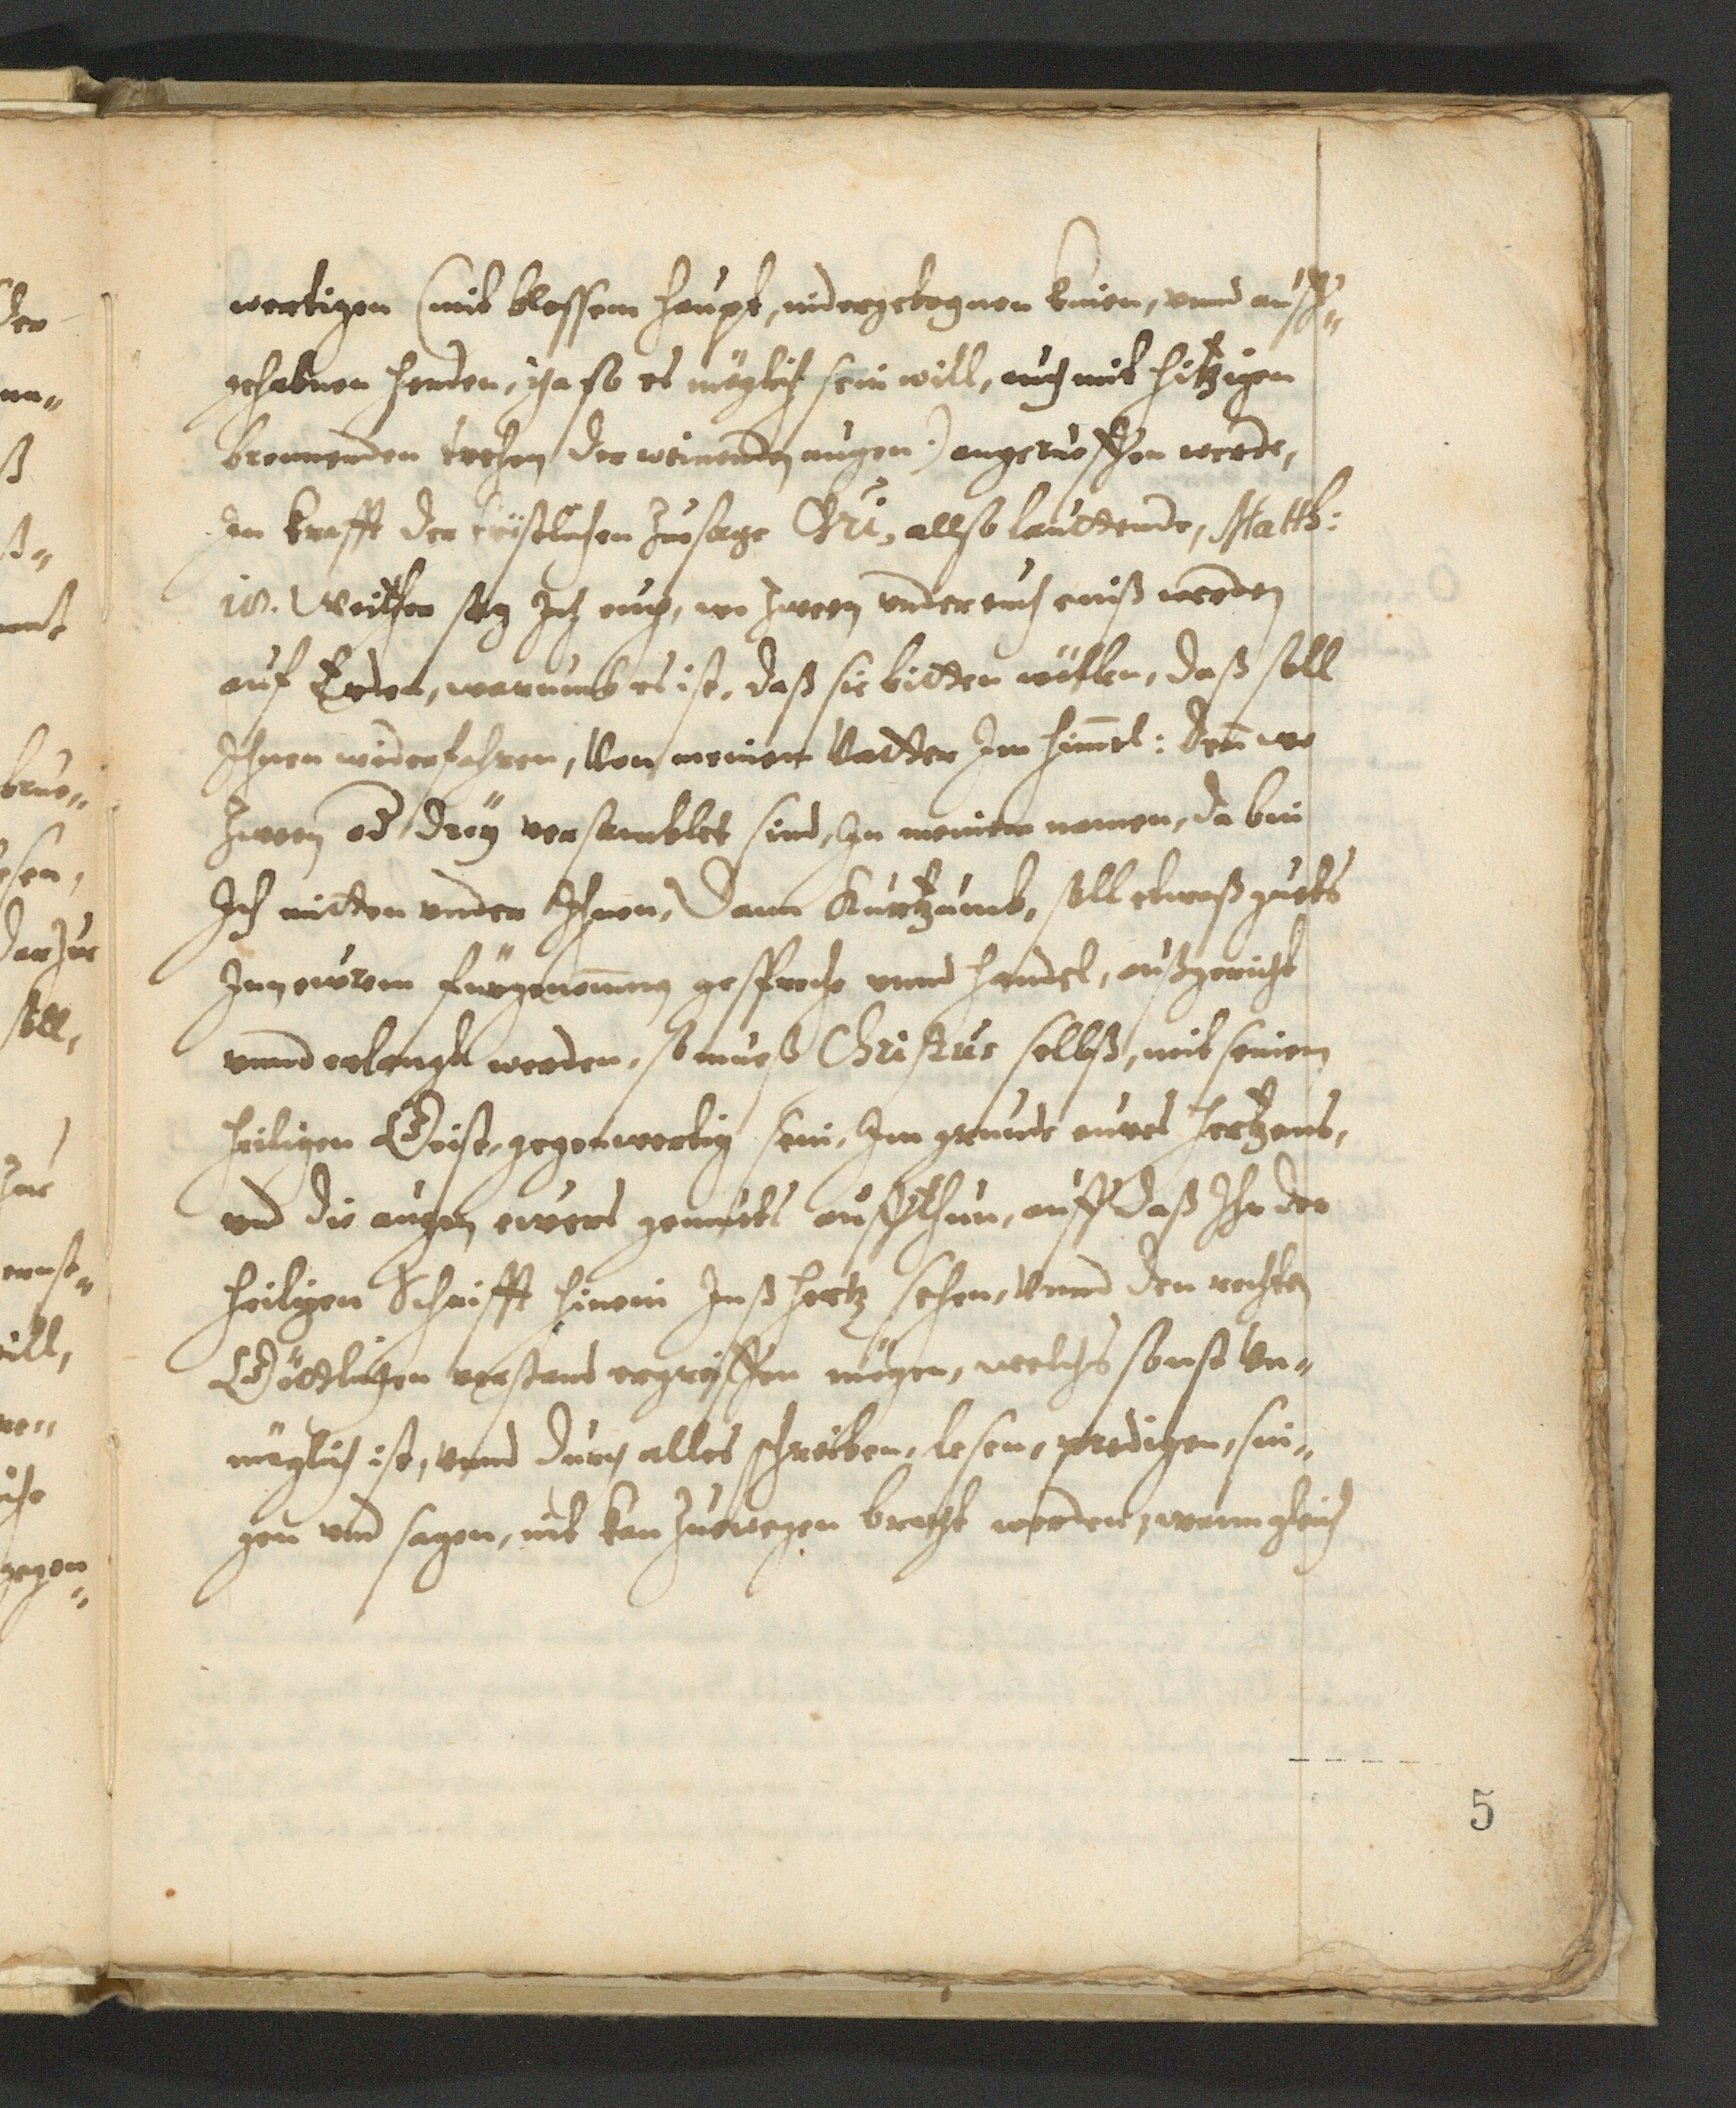 wertigen (mit blossem haupt, nidergebognen knien, vnnd auff„
gehabnen henden, ja so es möglich sein will, auch mit hitzigen
brennenden trehen der weinenden augen.) angerueffen werde,
In krafft der tröstlichen Zusage Chri̅, allso lauttende, Matth:
18. Weitter sag Ich euch, wo zween vnder euch eniß werden
auf Erden, warumb es ist, daß sie bitten wöllen, daß soll
Ihnen widerfahren, Von meinem Vatter Im him̅el: Den̅ wo
Zween od drey versamblet sind, In meinem namen, da bin
Ich mitten vnder Ihnen, Dann Kurtzumb, soll etwaß guets
Inn eurem fürgenom̅nen gespreche vnnd handel, außgericht
vnnd erlangt werden, so mueß Christus selbst, mit seinem
heiligen Geist, gegenwertig sein, Im grunde eures hertzens,
vnd die augen eurers gemüets auffthun, auff daß Ihr der
heiligen Schrifft hinein Inß hertz sehen, Vnnd den rechten
Göttlichen verstand ergreiffen mögen, welchs sonst Vn„
möglich ist, vnnd durch alles schreiben, lesen, predigen, sin„
gen vnd sagen, nit kan zuwegen bracht werden, wann gleich
5